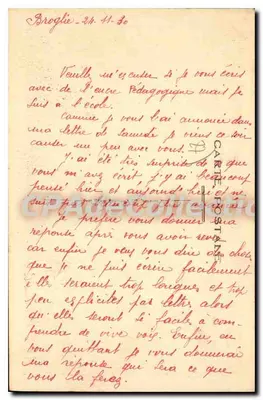 Broglie - 24-11-30
Veuillez m'excuser si je vous écris
avec de l'encre Pédagogique mais je
suis à l'école.
Comme je vous l'ai annoncé dans
ma lettre de samedi je viens ce soir
causer un peu avec vous.
J'ai été très surprise de ce que
vous m'avez écrit. J'y ai beaucoup
pensé hier et aujourd'hui et ne
suis pas
Je préfère vous donner ma
réponse après vous avoir revu
car enfin je veux vous dire des choses
que je ne puis écrire facilement
elles seraient trop longues et trop
peu explicites par lettre, alors
qu'elles seront si faciles à com-
prendre de vive voix. Enfin, en
vous quittant je vous donnerai
ma réponse qui sera ce que
vous la ferez.
CARTE POSTALE